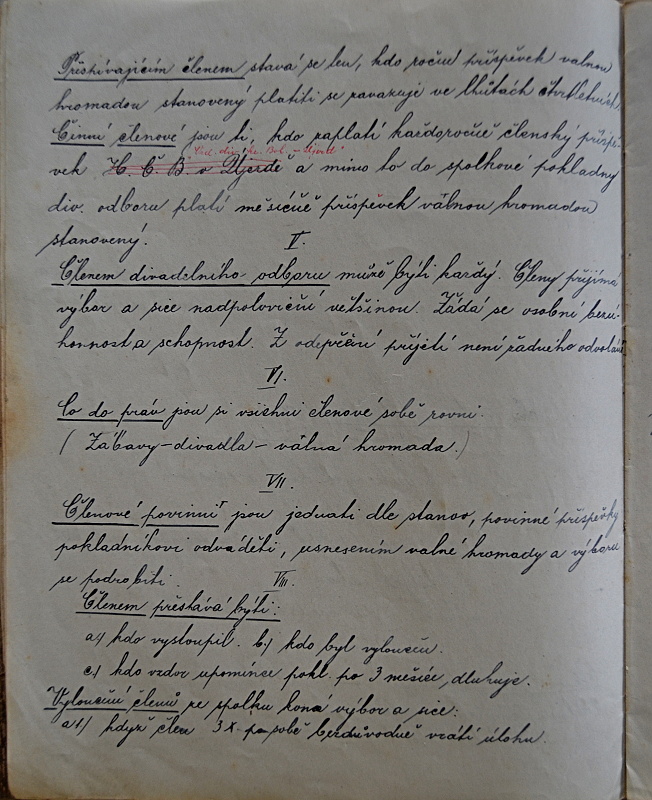 Přispívajícím členem stává se ten, kdo roční příspěvek valnou
hromadou stanovený platiti se zavazuje ve lhůtách čtvrtletních.
Činní členové jsou ti, kdo zaplatí každoročně členský příspě-
vek H. Č. B. v Újezdě a mimo to do spolkové pokladny
div. odboru platí měsíčně příspěvek válnou hromadou
stanovený.
V.
Členem divadelního odboru může býti každý. Členy přijímá
výbor a sice nadpoloviční většinou. Žádá se osobní bezú-
honnost a schopnost. Z odepření přijetí není řádného odvolání
VI.
Co do práv jsou si všichni členové sobě rovni.
(Zábavy - divadla - válná hromada.)
VII.
Členové povinni jsou jednati dle stanov, povinné příspěvky
pokladníkovi odváděti, usnesením valné hromady a výboru
se podrobiti.
VIII.
Členem přestává býti:
a) kdo vystoupil. b) kdo byl vyloučen.
c) kdo vzdor upomínce pokl. po 3 měsíce, dluhuje.
Vyloučení členů ze spolku koná výbor a sice:
a1) když člen 3x po sobě bezdůvodně vrátí úlohu.